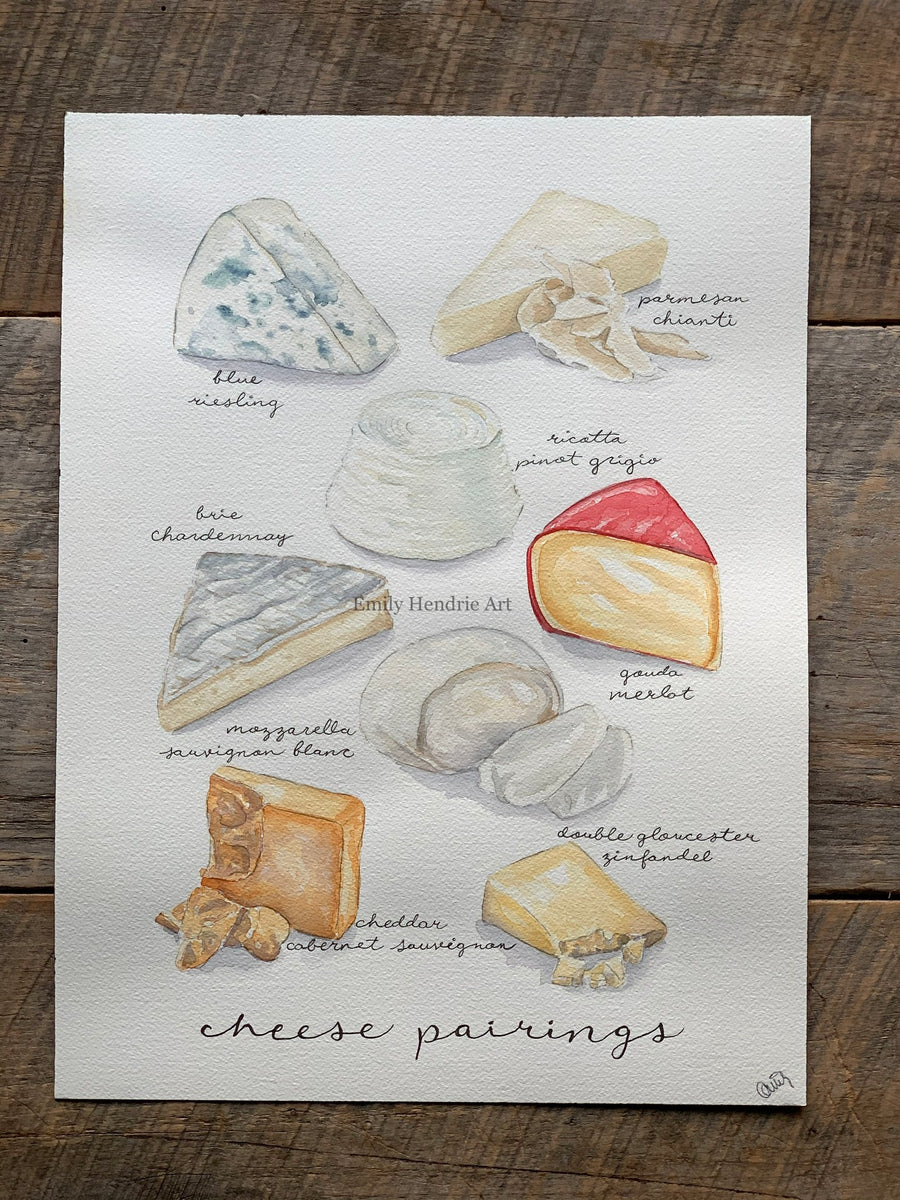 blue
riesling
parmesan
chianti
ricotta
pinot grigio
brie
chardonnay
Emily Hendrie Art
gouda
merlot
mozzarella
sauvignon blanc
double gloucester
zinfandel
cheddar
cabernet sauvignon
cheese pairings